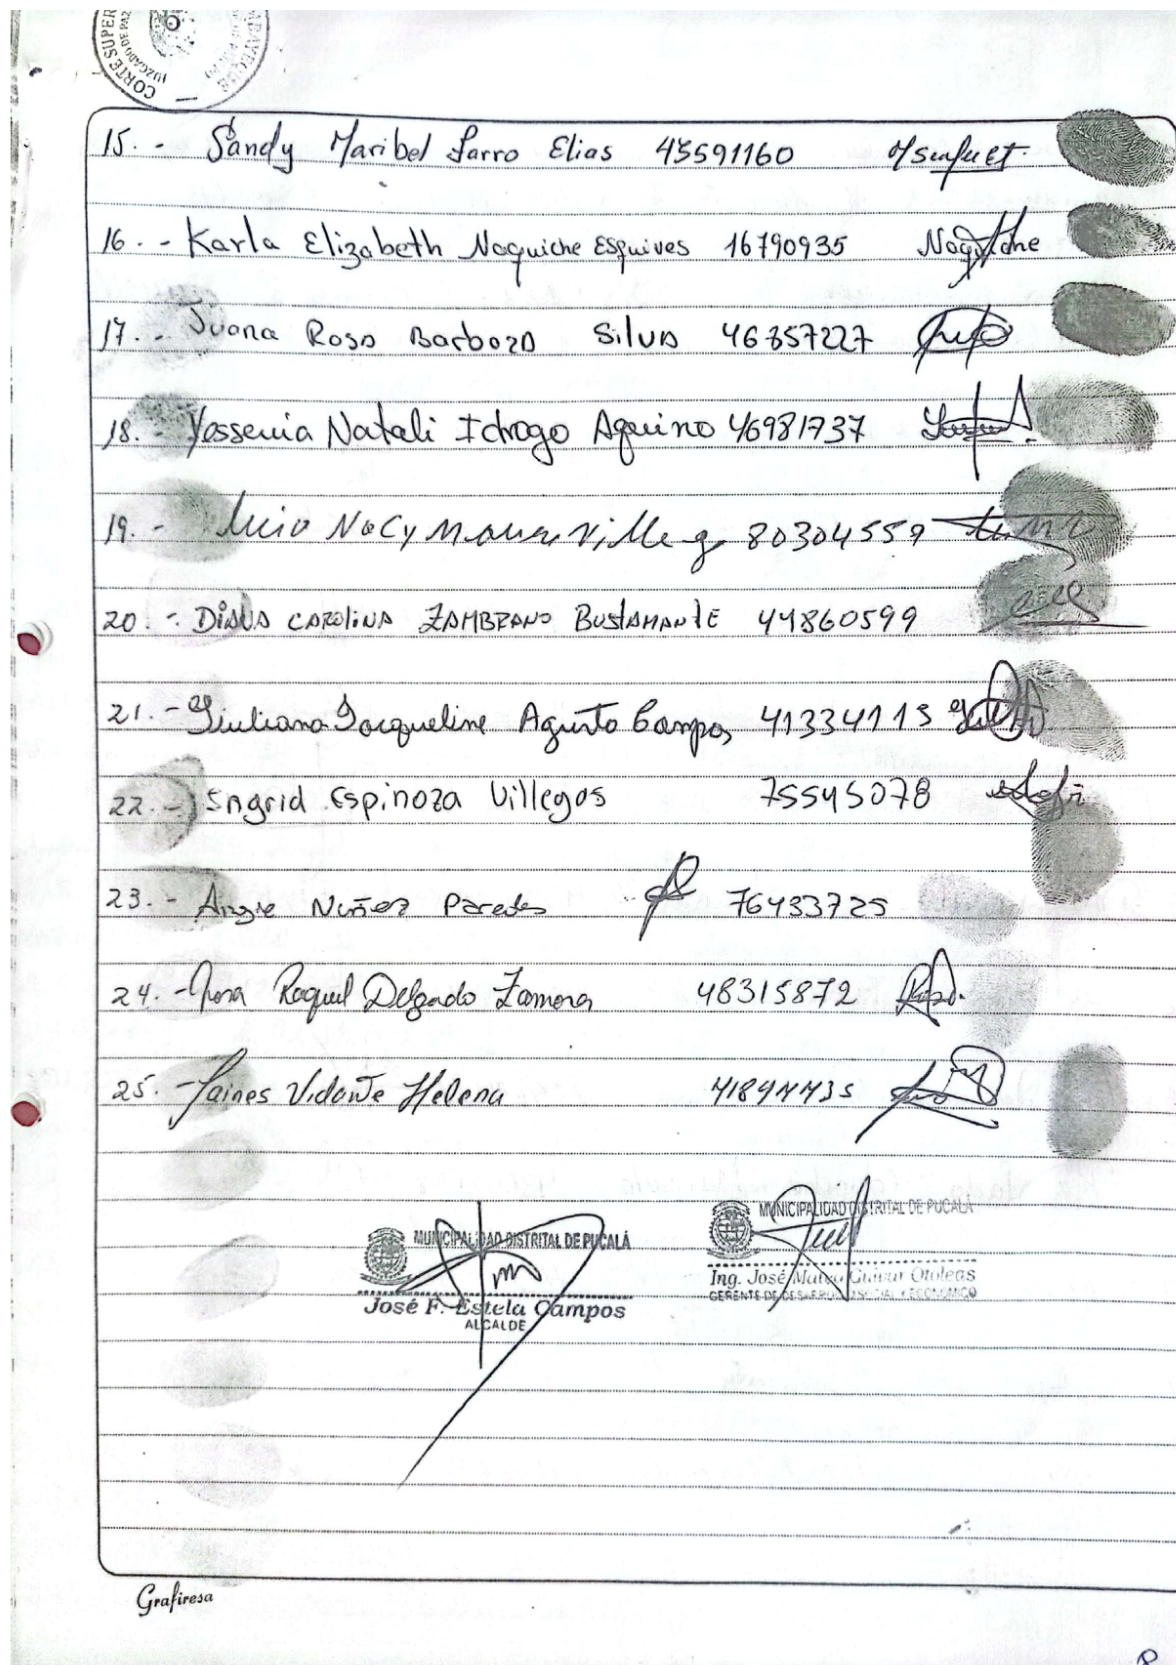 CORTE SUPER
JUZGADO DE PAZ
15.- Sandy Maribel Farro Elias 45591160
16.- Karla Elizabeth Naquiche Esquives 16790935 Naquiche
17.- Juana Rosa Barboza Silva 46357227
18.- Yessenia Natali Idrogo Aquino 46981737
19.- Nacy 80304559
20.- Diana Carolina Zambrano Bustamante 44860599
21.- Giuliana Jacqueline Agurto Campos 41334113
22.- Ingrid Espinoza Villegas 75545078
23.- Angie Nuñez Paredes 76433725
24.- Raquel Delgado Zamora 48315872
25.- Vidarte Helena
MUNICIPALIDAD DISTRITAL DE PUCALÁ
José F. Estela Campos
ALCALDE
MUNICIPALIDAD DISTRITAL DE PUCALÁ
Ing. José Mateo Otoleas
GERENTE DE DESARROLLO SOCIAL Y ECONOMICO
Grafiresa